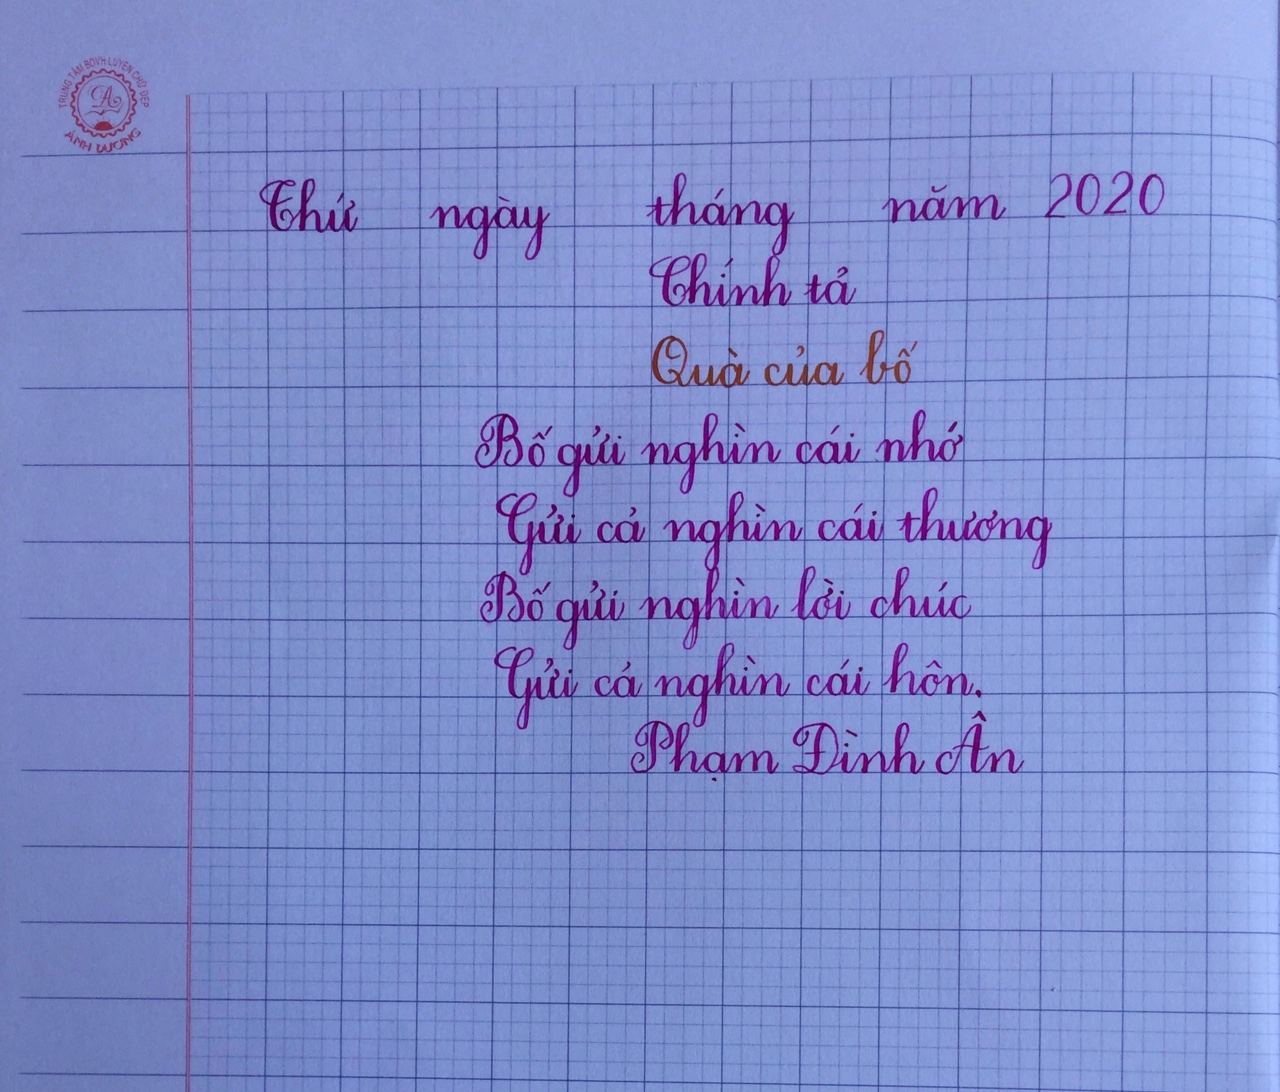 TRUNG TÂM BDVH LUYỆN CHỮ ĐẸP
ÁNH DƯƠNG
Thứ ngày tháng năm 2020
Chính tả
Quà của bố
Bố gửi nghìn cái nhớ
Gửi cả nghìn cái thương
Bố gửi nghìn lời chúc
Gửi cả nghìn cái hôn.
Phạm Đình Ân